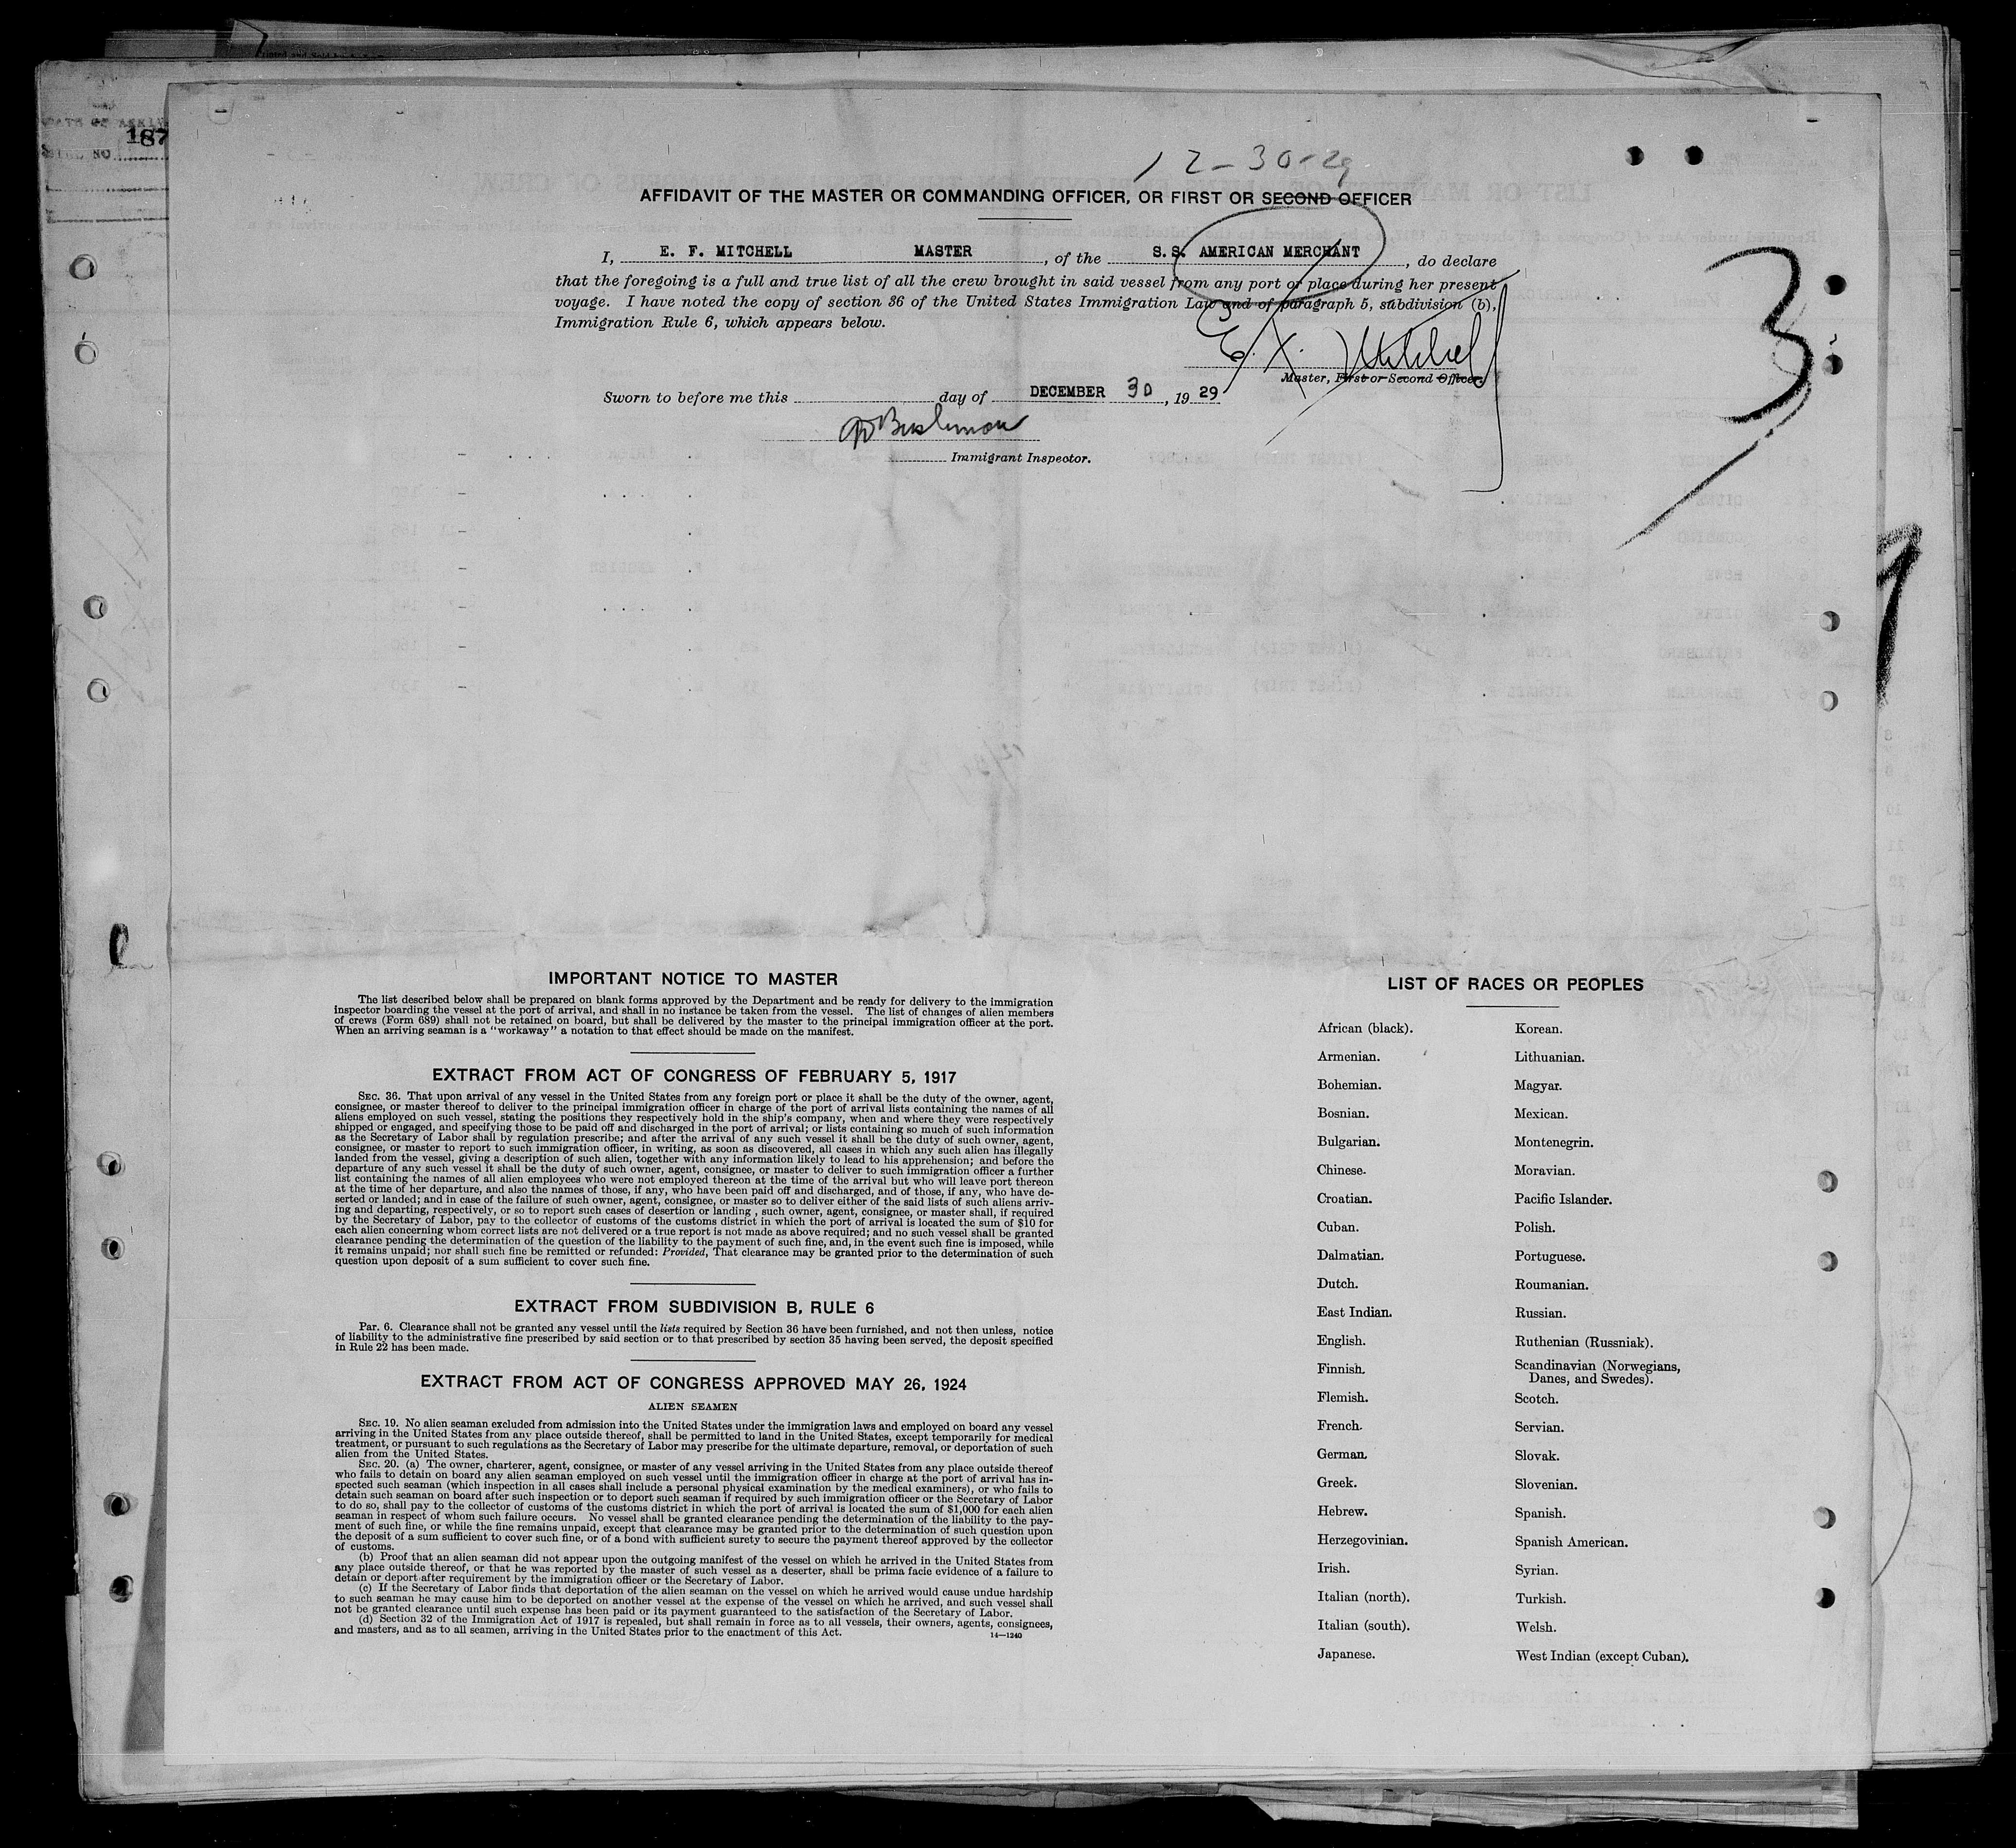 187
12-30-29
AFFIDAVIT OF THE MASTER OR COMMANDING OFFICER, OR FIRST OR SECOND OFFICER
I, E. F. MITCHELL MASTER, of the S.S. AMERICAN MERCHANT, do declare
that the foregoing is a full and true list of all the crew brought in said vessel from any port or place during her present
voyage. I have noted the copy of section 36 of the United States Immigration Law and of paragraph 5, subdivision (b),
Immigration Rule 6, which appears below.
E. F. Mitchell
Master, First or Second Officer.
Sworn to before me this day of DECEMBER 30, 1929
Immigrant Inspector.
3
IMPORTANT NOTICE TO MASTER
The list described below shall be prepared on blank forms approved by the Department and be ready for delivery to the immigration
inspector boarding the vessel at the port of arrival, and shall in no instance be taken from the vessel. The list of changes of alien members
of crews (Form 689) shall not be retained on board, but shall be delivered by the master to the principal immigration officer at the port.
When an arriving seaman is a "workaway" a notation to that effect should be made on the manifest.
EXTRACT FROM ACT OF CONGRESS OF FEBRUARY 5, 1917
SEC. 36. That upon arrival of any vessel in the United States from any foreign port or place it shall be the duty of the owner, agent,
consignee, or master thereof to deliver to the principal immigration officer in charge of the port of arrival lists containing the names of all
aliens employed on such vessel, stating the positions they respectively hold in the ship's company, when and where they were respectively
shipped or engaged, and specifying those to be paid off and discharged in the port of arrival; or lists containing so much of such information
as the Secretary of Labor shall by regulation prescribe; and after the arrival of any such vessel it shall be the duty of such owner, agent,
consignee, or master to report to such immigration officer, in writing, as soon as discovered, all cases in which any such alien has illegally
landed from the vessel, giving a description of such alien, together with any information likely to lead to his apprehension; and before the
departure of any such vessel it shall be the duty of such owner, agent, consignee, or master to deliver to such immigration officer a further
list containing the names of all alien employees who were not employed thereon at the time of the arrival but who will leave port thereon
at the time of her departure, and also the names of those, if any, who have been paid off and discharged, and of those, if any, who have de-
serted or landed; and in case of the failure of such owner, agent, consignee, or master so to deliver either of the said lists of such aliens arriv-
ing and departing, respectively, or so to report such cases of desertion or landing , such owner, agent, consignee, or master shall, if required
by the Secretary of Labor, pay to the collector of customs of the customs district in which the port of arrival is located the sum of $10 for
each alien concerning whom correct lists are not delivered or a true report is not made as above required; and no such vessel shall be granted
clearance pending the determination of the question of the liability to the payment of such fine, and, in the event such fine is imposed, while
it remains unpaid; nor shall such fine be remitted or refunded: Provided, That clearance may be granted prior to the determination of such
question upon deposit of a sum sufficient to cover such fine.
EXTRACT FROM SUBDIVISION B, RULE 6
Par. 6. Clearance shall not be granted any vessel until the lists required by Section 36 have been furnished, and not then unless, notice
of liability to the administrative fine prescribed by said section or to that prescribed by section 35 having been served, the deposit specified
in Rule 22 has been made.
EXTRACT FROM ACT OF CONGRESS APPROVED MAY 26, 1924
ALIEN SEAMEN
SEC. 19. No alien seaman excluded from admission into the United States under the immigration laws and employed on board any vessel
arriving in the United States from any place outside thereof, shall be permitted to land in the United States, except temporarily for medical
treatment, or pursuant to such regulations as the Secretary of Labor may prescribe for the ultimate departure, removal, or deportation of such
alien from the United States.
SEC. 20. (a) The owner, charterer, agent, consignee, or master of any vessel arriving in the United States from any place outside thereof
who fails to detain on board any alien seaman employed on such vessel until the immigration officer in charge at the port of arrival has in-
spected such seaman (which inspection in all cases shall include a personal physical examination by the medical examiners), or who fails to
detain such seaman on board after such inspection or to deport such seaman if required by such immigration officer or the Secretary of Labor
to do so, shall pay to the collector of customs of the customs district in which the port of arrival is located the sum of $1,000 for each alien
seaman in respect of whom such failure occurs. No vessel shall be granted clearance pending the determination of the liability to the pay-
ment of such fine, or while the fine remains unpaid, except that clearance may be granted prior to the determination of such question upon
the deposit of a sum sufficient to cover such fine, or of a bond with sufficient surety to secure the payment thereof approved by the collector
of customs.
(b) Proof that an alien seaman did not appear upon the outgoing manifest of the vessel on which he arrived in the United States from
any place outside thereof, or that he was reported by the master of such vessel as a deserter, shall be prima facie evidence of a failure to
detain or deport after requirement by the immigration officer or the Secretary of Labor.
(c) If the Secretary of Labor finds that deportation of the alien seaman on the vessel on which he arrived would cause undue hardship
to such seaman he may cause him to be deported on another vessel at the expense of the vessel on which he arrived, and such vessel shall
not be granted clearance until such expense has been paid or its payment guaranteed to the satisfaction of the Secretary of Labor.
(d) Section 32 of the Immigration Act of 1917 is repealed, but shall remain in force as to all vessels, their owners, agents, consignees,
and masters, and as to all seamen, arriving in the United States prior to the enactment of this Act.
14—1240
LIST OF RACES OR PEOPLES
African (black).
Armenian.
Bohemian.
Bosnian.
Bulgarian.
Chinese.
Croatian.
Cuban.
Dalmatian.
Dutch.
East Indian.
English.
Finnish.
Flemish.
French.
German.
Greek.
Hebrew.
Herzegovinian.
Irish.
Italian (north).
Italian (south).
Japanese.
Korean.
Lithuanian.
Magyar.
Mexican.
Montenegrin.
Moravian.
Pacific Islander.
Polish.
Portuguese.
Roumanian.
Russian.
Ruthenian (Russniak).
Scandinavian (Norwegians,
Danes, and Swedes).
Scotch.
Servian.
Slovak.
Slovenian.
Spanish.
Spanish American.
Syrian.
Turkish.
Welsh.
West Indian (except Cuban).